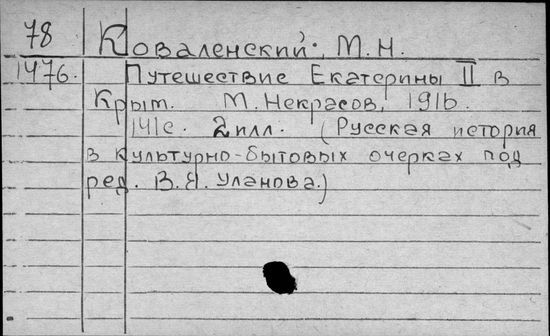 78 Коваленский, М.Н.
1476. Путешествие Екатерины II в
Крым. М. Некрасов, 1916.
141с. 2илл. (Русская история
в культурно-бытовых очерках под
ред. В.Я. Уланова.)